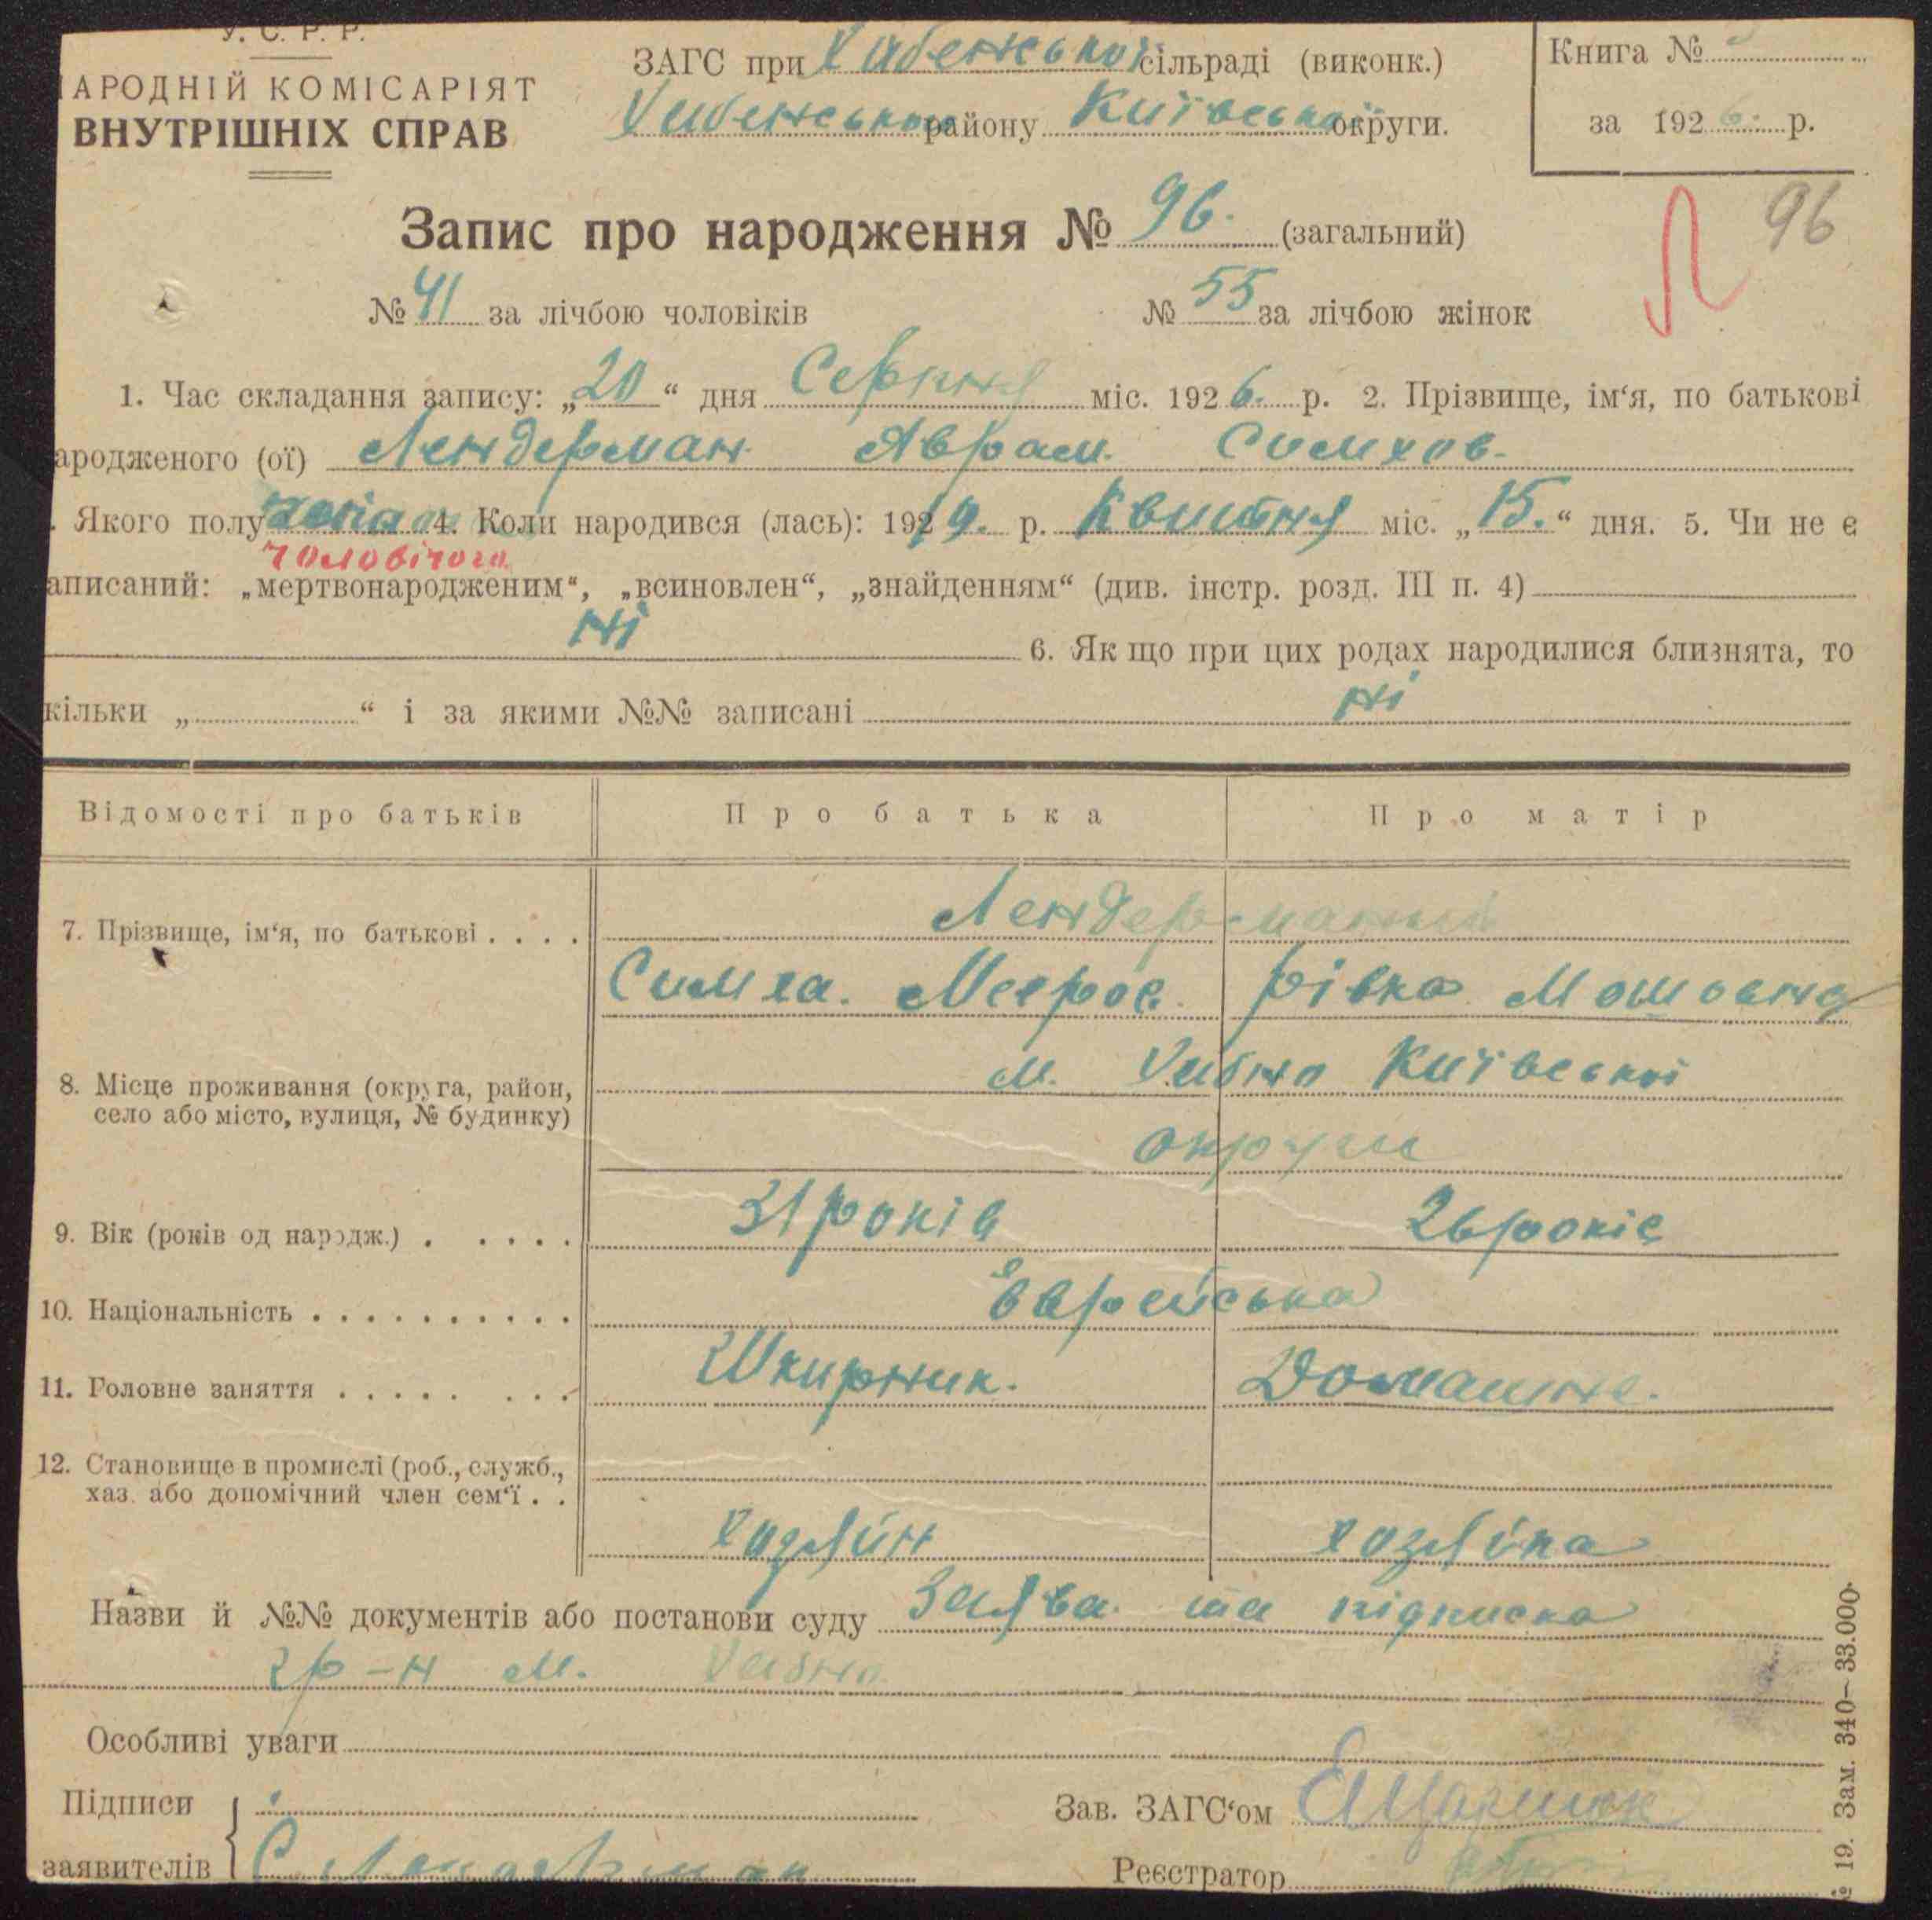 У. С. Р. Р.
АРОДНІЙ КОМІСАРІЯТ
ВНУТРІШНІХ СПРАВ
ЗАГС при Хабенської сільраді (виконк.)
Хабенського району Київської округи.
Книга №
за 192 6. р.
Запис про народження № 96. (загальний)
96
№ 41 за лічбою чоловіків № 55 за лічбою жінок
1. Час складання запису: „20“ дня Серпня міс. 192 6. р. 2. Прізвище, ім‘я, по батькові
ародженого (ої) Лендерман Аврам. Симхов.
. Якого полу 4. Коли народився (лась): 1919. р. Квитня міс. „15.“ дня. 5. Чи не є
чоловічого
аписаний: „мертвонародженим“, „всиновлен“, „знайденням“ (див. інстр. розд. III п. 4)
ні 6. Як що при цих родах народилися близнята, то
кільки „ “ і за якими №№ записані ні
Відомості про батьків Про батька Про матір
7. Прізвище, ім‘я, по батькові . . . . Лендерман
Симха. Меєров. Рівка Мошовна
8. Місце проживання (округа, район, село або місто, вулиця, № будинку) м. Хабно Київської
округи
9. Вік (років од народж.) . . . . . 31 років 26 років
10. Національність . . . . . . . . . . Єврейська
11. Головне заняття . . . . . . . . Шкирник. Домашнє.
12. Становище в промислі (роб., служб., хаз. або допомічний член сем‘ї . .
хазяїн хазяїка
Назви й №№ документів або постанови суду Заява та підписка
гр-н м. Хабно
Особливі уваги
Підписи
заявителів С. Лендерман
Зав. ЗАГС‘ом
Реєстратор
19. Зам. 340–33.000